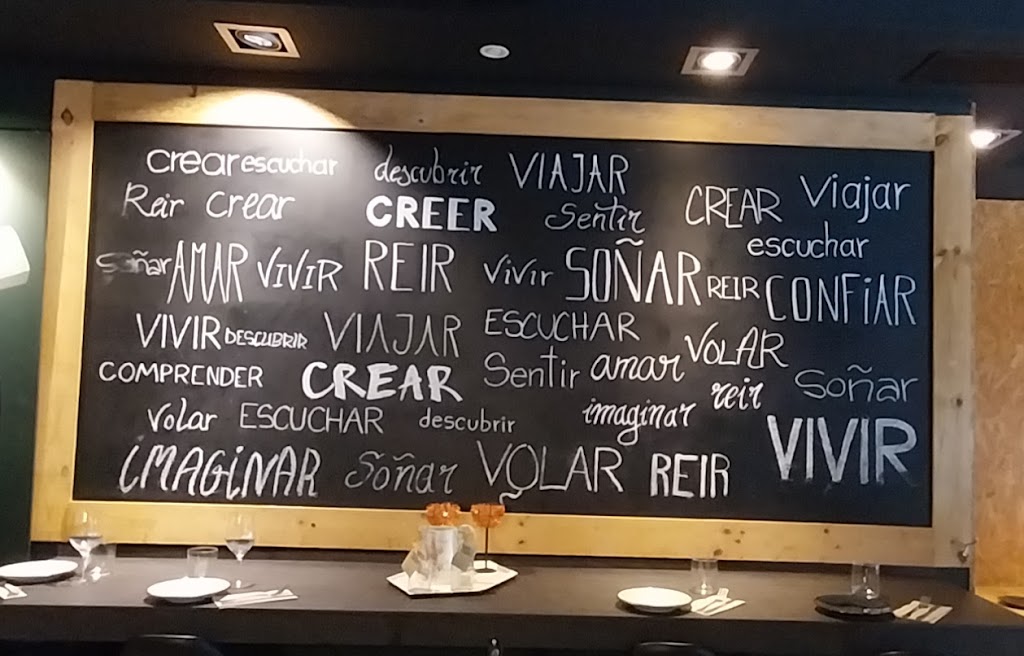 crear escuchar descubrir VIAJAR
Reir crear CREER Sentir CREAR Viajar
escuchar
Soñar AMAR VIVIR REIR vivir SOÑAR REIR CONFiAR
VIVIR DESCUBRIR VIAJAR ESCUCHAR VOLAR
COMPRENDER CREAR Sentir amar reir Soñar
Volar ESCUCHAR descubrir imaginar VIVIR
iMAGiNAR Soñar VOLAR REIR